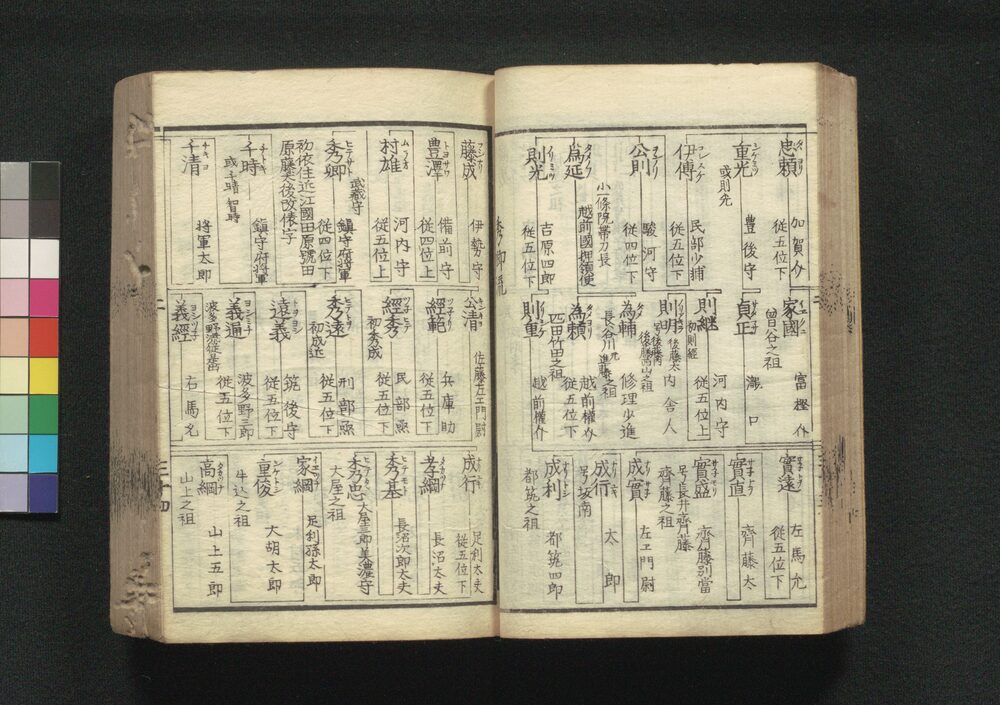 忠頼
加賀介
従五位下
重光
或則光
豊後守
伊傅
民部少輔
従五位下
公則
駿河守
従四位下
為延
小一條院帯刀長
越前國押領使
則光
吉原四郎
従五位下
家國
冨樫介
曽谷之祖
貞正
瀧口
則継
初則経
河内守
従五位上
則明
号後藤内
後藤太
内舎人
為輔
長谷川
進藤之祖
修理少進
為頼
越前權介
従五位下
匹田竹田之祖
則重
越前權介
實遠
左馬允
従五位下
實直
齊藤太
實盛
号長井齊藤
齊藤別當
齊藤之祖
成實
左ヱ門尉
成行
号坂南
太郎
成利
都筑四郎
都筑之祖
秀郷流
藤成
伊勢守
豊澤
備前守
従四位上
村雄
河内守
従五位上
秀郷
武蔵守
鎮守府将軍
従四位下
初依住近江國田原號田
原藤太後改俵字
千時
或千晴
鎮守府将軍
千清
将軍太郎
公清
佐藤左ヱ門尉
経範
兵庫助
従五位下
經秀
初秀成
民部丞
従五位下
秀遠
初成遠
刑部丞
従五位下
遠義
筑後守
従五位下
義通
波多野三郎
従五位下
義經
右馬允
成行
足利太夫
従五位下
孝綱
長沼太夫
秀基
長沼次郎太夫
秀忠
大屋三郎美濃守
大屋之祖
家綱
足利孫太郎
重俊
大胡太郎
牛込之祖
高綱
山上五郎
山上之祖
三十四